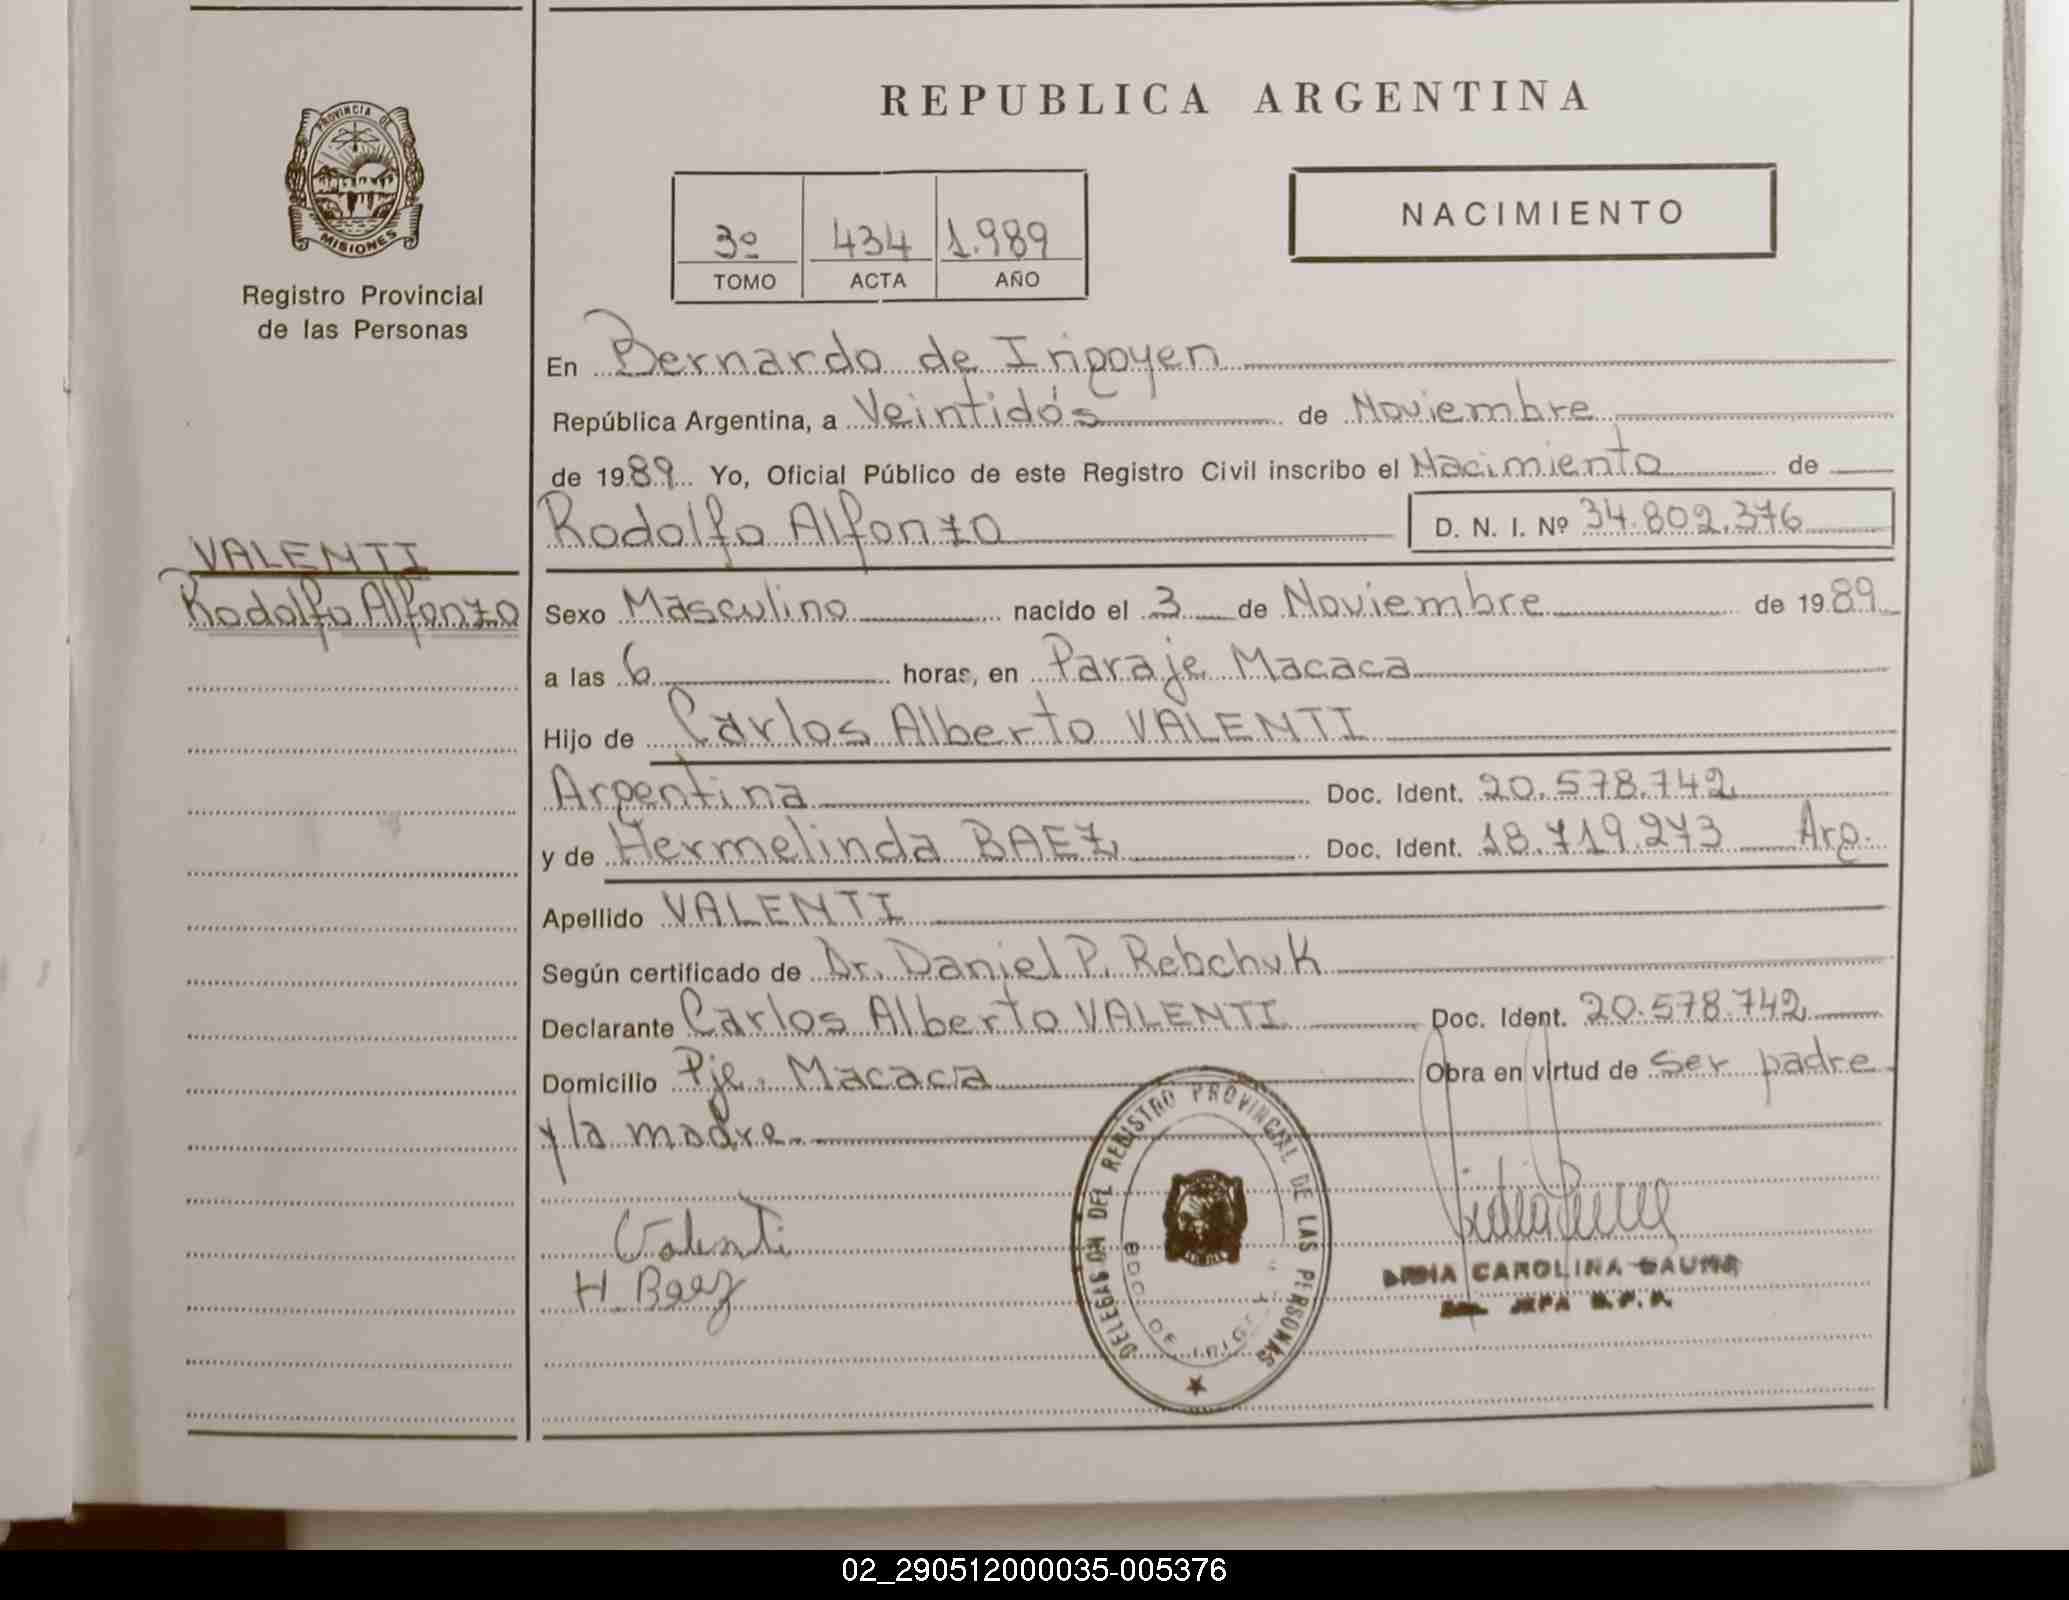 REPUBLICA ARGENTINA
PROVINCIA DE
MISIONES
Registro Provincial
de las Personas
3º 434 1.989
TOMO ACTA AÑO
NACIMIENTO
En Bernardo de Irigoyen
República Argentina, a Veintidós de Noviembre
de 1989 Yo, Oficial Público de este Registro Civil inscribo el Nacimiento de
Rodolfo Alfonzo D. N. I. Nº 34.802.376
VALENTI
Rodolfo Alfonzo
Sexo Masculino nacido el 3 de Noviembre de 1989
a las 6 horas, en Paraje Macaca
Hijo de Carlos Alberto VALENTI
Argentina Doc. Ident. 20.578.742
y de Hermelinda BAEZ Doc. Ident. 18.719.273 Arg.
Apellido VALENTI
Según certificado de Dr. Daniel P. Rebchuk
Declarante Carlos Alberto VALENTI Doc. Ident. 20.578.742
Domicilio Pje. Macaca Obra en virtud de ser padre
y la madre
Valenti
H. Baez
DELEGASON DEL REGISTRO PROVINCIAL DE LAS PERSONAS
BDO DE
CAROLINA
JEFA R.P.P.
02_290512000035-005376